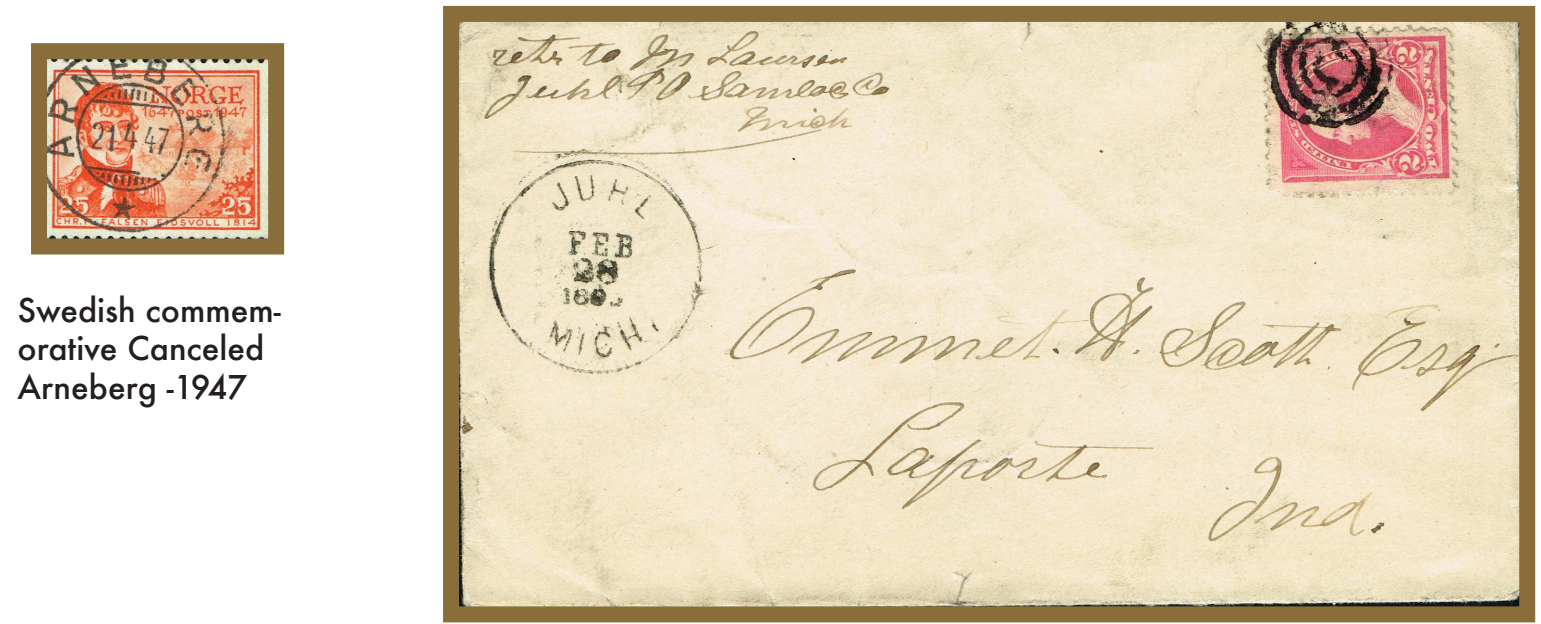 ARNEBERG
NORGE
1647 POST 1947
21.4.47
25 25
CHR. M. FALSEN EIDSVOLL 1814
Swedish commem-
orative Canceled
Arneberg -1947
retr to M Laursen
Juhl PO Sanilac Co
Mich
JUHL
FEB
28
MICH.
2 2
UNITED
Emmet. H. Scott. Esq
Laporte
Ind.